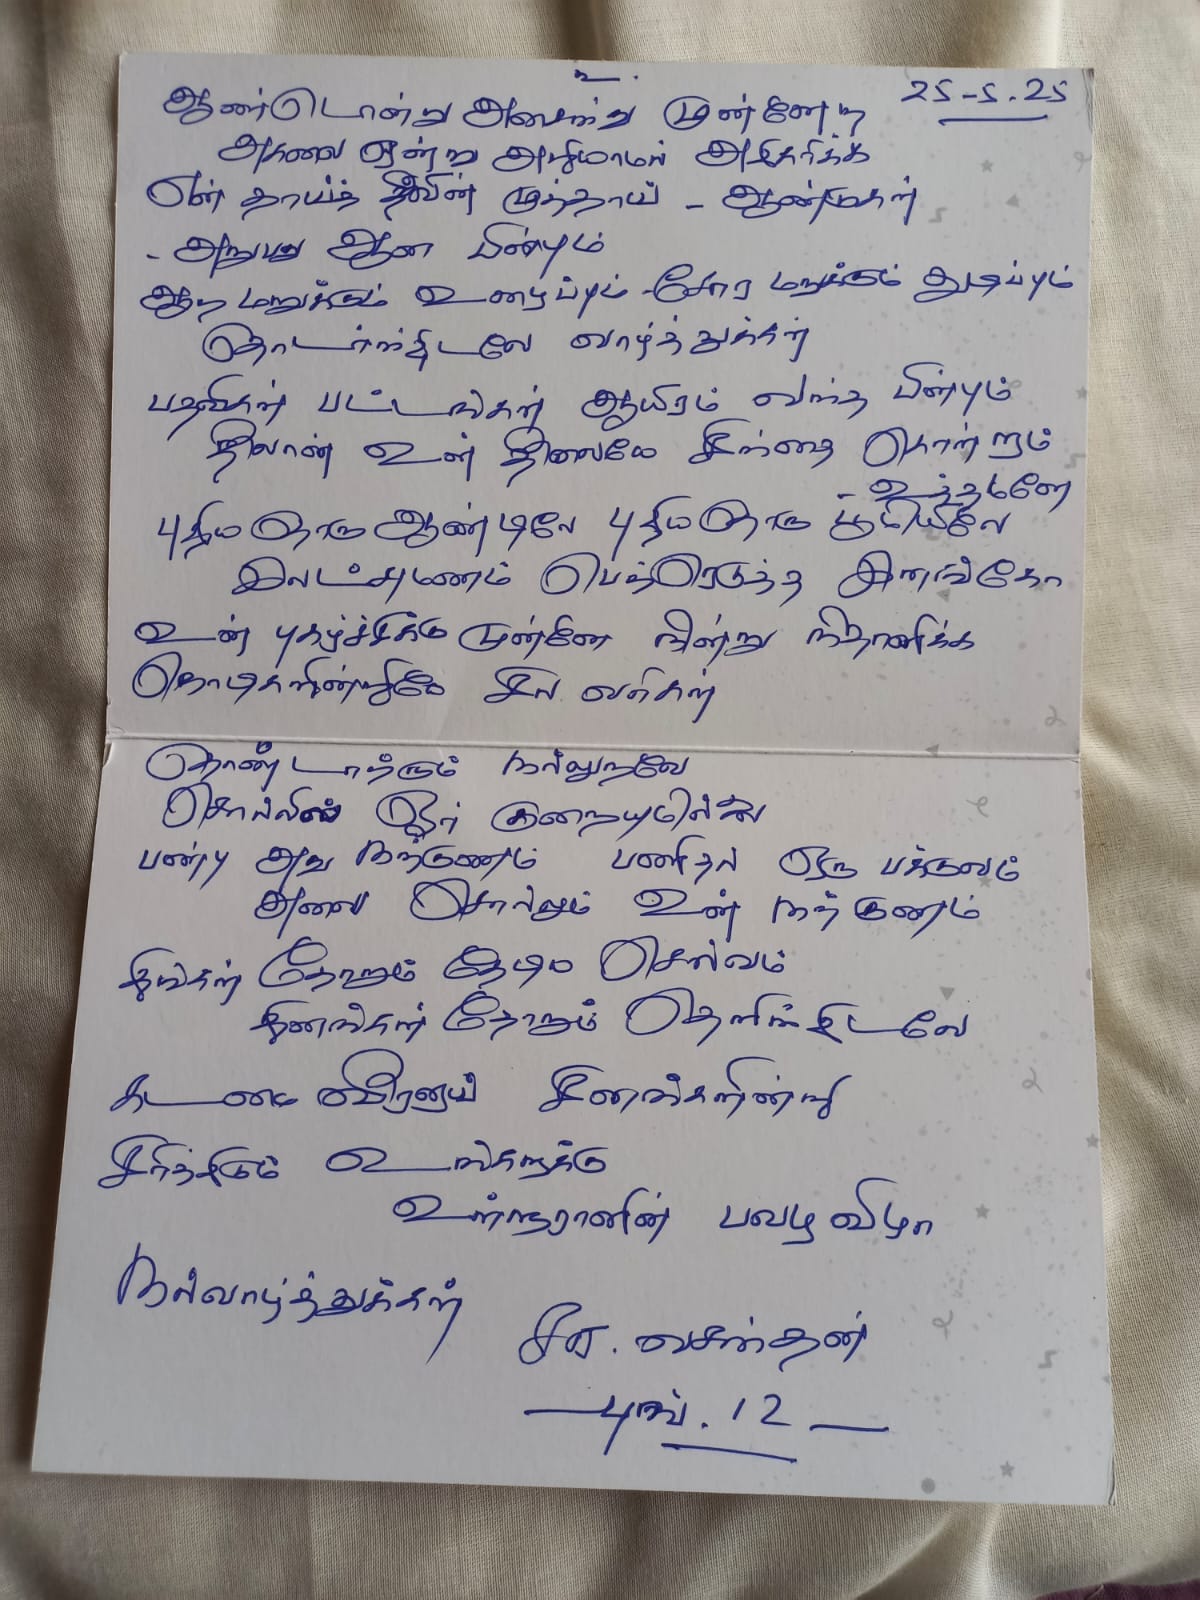 உ.
25-5.25
ஆண்டொன்று அகன்று முன்னேற
அகவை ஒன்று அறியாமல் அதிகரிக்க
என் தாய்த் தீவின் முத்தாய் - ஆண்மகன்
- அறுபது ஆன பின்பும்
ஆற மறுக்கும் உழைப்பும் சோர மறுக்கும் துடிப்பும்
தொடர்ந்திடவே வாழ்த்துக்கள்
பதவிகள் பட்டங்கள் ஆயிரம் வந்த பின்பும்
தீவான் உன் நிலையே சிந்தை கொன்றும்
- உத்தமனே
புதியதொரு ஆண்டிலே புதியதொரு பூமியிலே
இலட்சுமணம் பெற்றெடுத்த இளங்கோ
உன் புகழ்ச்சிக்கு முன்னே நின்று நிதானிக்க
தொடிகளின்றியே சில வரிகள்
தொண்டாற்றும் நல்லுறவே
சொல்லில் ஓர் குறையுமில்லை
பண்பு அது நற்குணம் பணிதல் ஒரு பக்குவம்
அவை சொல்லும் உன் நற்குணம்
திங்கள் தோறும் தேடிய செல்வம்
தினங்கள் தோறும் தெளிந்திடவே
கடமை வீரனாய் சினங்களின்றி
சிரித்திடும் உங்களுக்கு
உள்ளூரானின் பவழ விழா
நல்வாழ்த்துக்கள்
சிவ. வசந்தன்
புங். 12